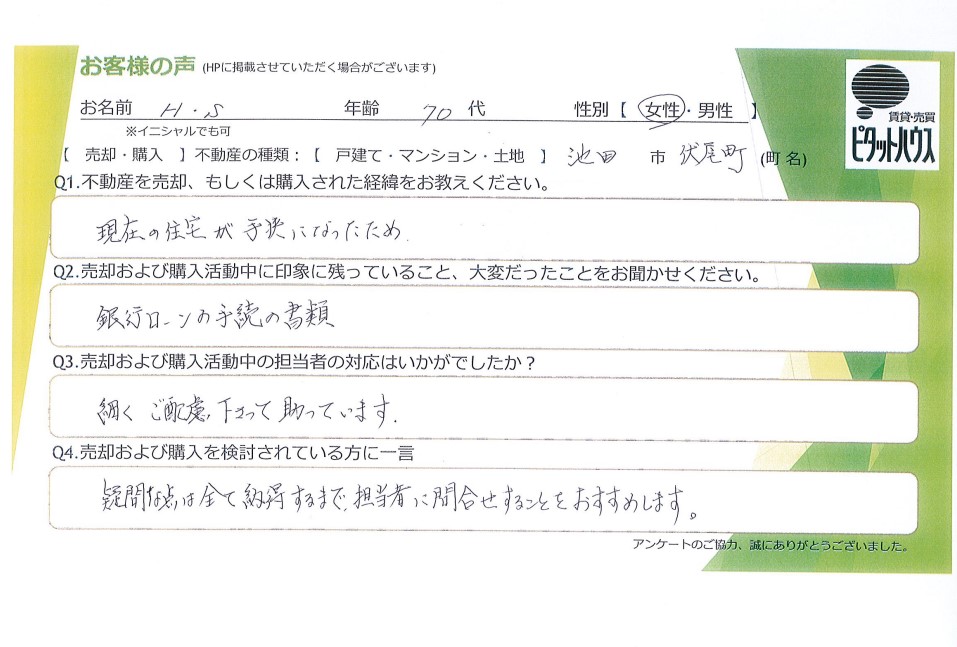 お客様の声 (HPに掲載させていただく場合がございます)
お名前 H・S 年齢 70 代 性別【 女性・男性 】
※イニシャルでも可
賃貸・売買
ピタットハウス
【 売却・購入 】不動産の種類：【 戸建て・マンション・土地 】 池田 市 伏尾町 (町名)
Q1.不動産を売却、もしくは購入された経緯をお教えください。
現在の住宅が手狭になったため.
Q2.売却および購入活動中に印象に残っていること、大変だったことをお聞かせください。
銀行ローンの手続の書類
Q3.売却および購入活動中の担当者の対応はいかがでしたか？
細く ご配慮 下さって 助っています.
Q4.売却および購入を検討されている方に一言
疑問な点は全て納得するまで、担当者に問合せすることをおすすめします。
アンケートのご協力、誠にありがとうございました。